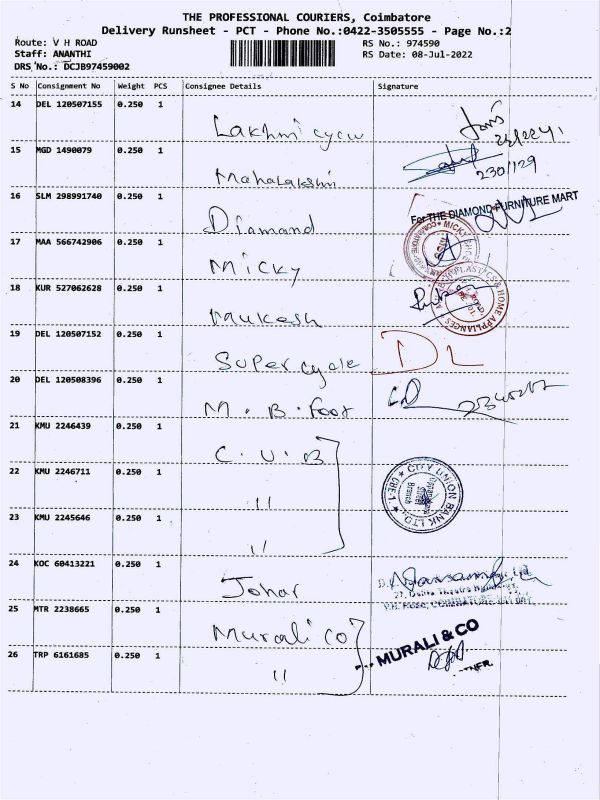 THE PROFESSIONAL COURIERS, Coimbatore
Delivery Runsheet - PCT - Phone No.:0422-3505555 - Page No.:2
Route: V H ROAD
Staff: ANANTHI
DRS No.: DCJB97459002
RS No.: 974590
RS Date: 08-Jul-2022
S No Consignment No Weight PCS Consignee Details Signature
14 DEL 120507155 0.250 1 Lakhmi cycw
15 MGD 1490079 0.250 1 Mahalakshmi
16 SLM 298991740 0.250 1 Diamand For THE DIAMOND FURNITURE MART
17 MAA 566742906 0.250 1 Micky
18 KUR 527062628 0.250 1 Mukesh
PLASTICS & HOME APPLIANCES
19 DEL 120507152 0.250 1 Super cycle DL
20 DEL 120508396 0.250 1 M. B. Foot
21 KMU 2246439 0.250 1 C. U. B
22 KMU 2246711 0.250 1 "
CITY UNION BANK LTD. CBE-1
23 KMU 2245646 0.250 1 "
24 KOC 60413221 0.250 1 Johar
25 MTR 2238665 0.250 1 Murali co
MURALI & CO
26 TRP 6161685 0.250 1 "